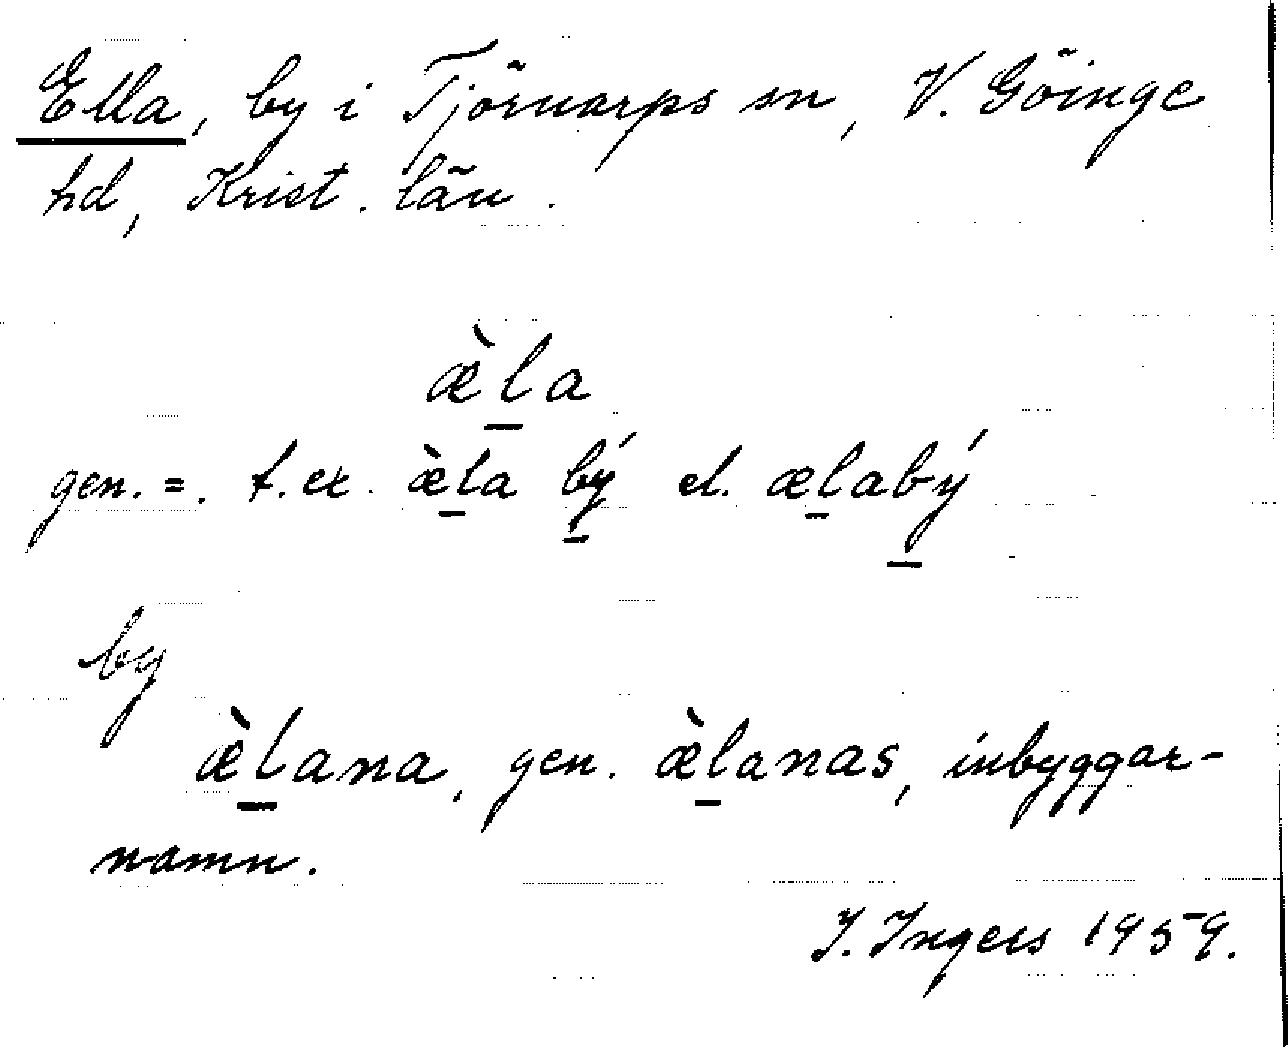 Ella, by i Tjörnarps sn, V. Göinge
hd, Krist. län.
æ̀l̲a
gen. =. t.ex. æ̀l̲a bý̲ el. æl̲abý̲
by
æ̀l̲ana, gen. æ̀l̲anas, inbyggar-
namn.
I. Ingers 1959.